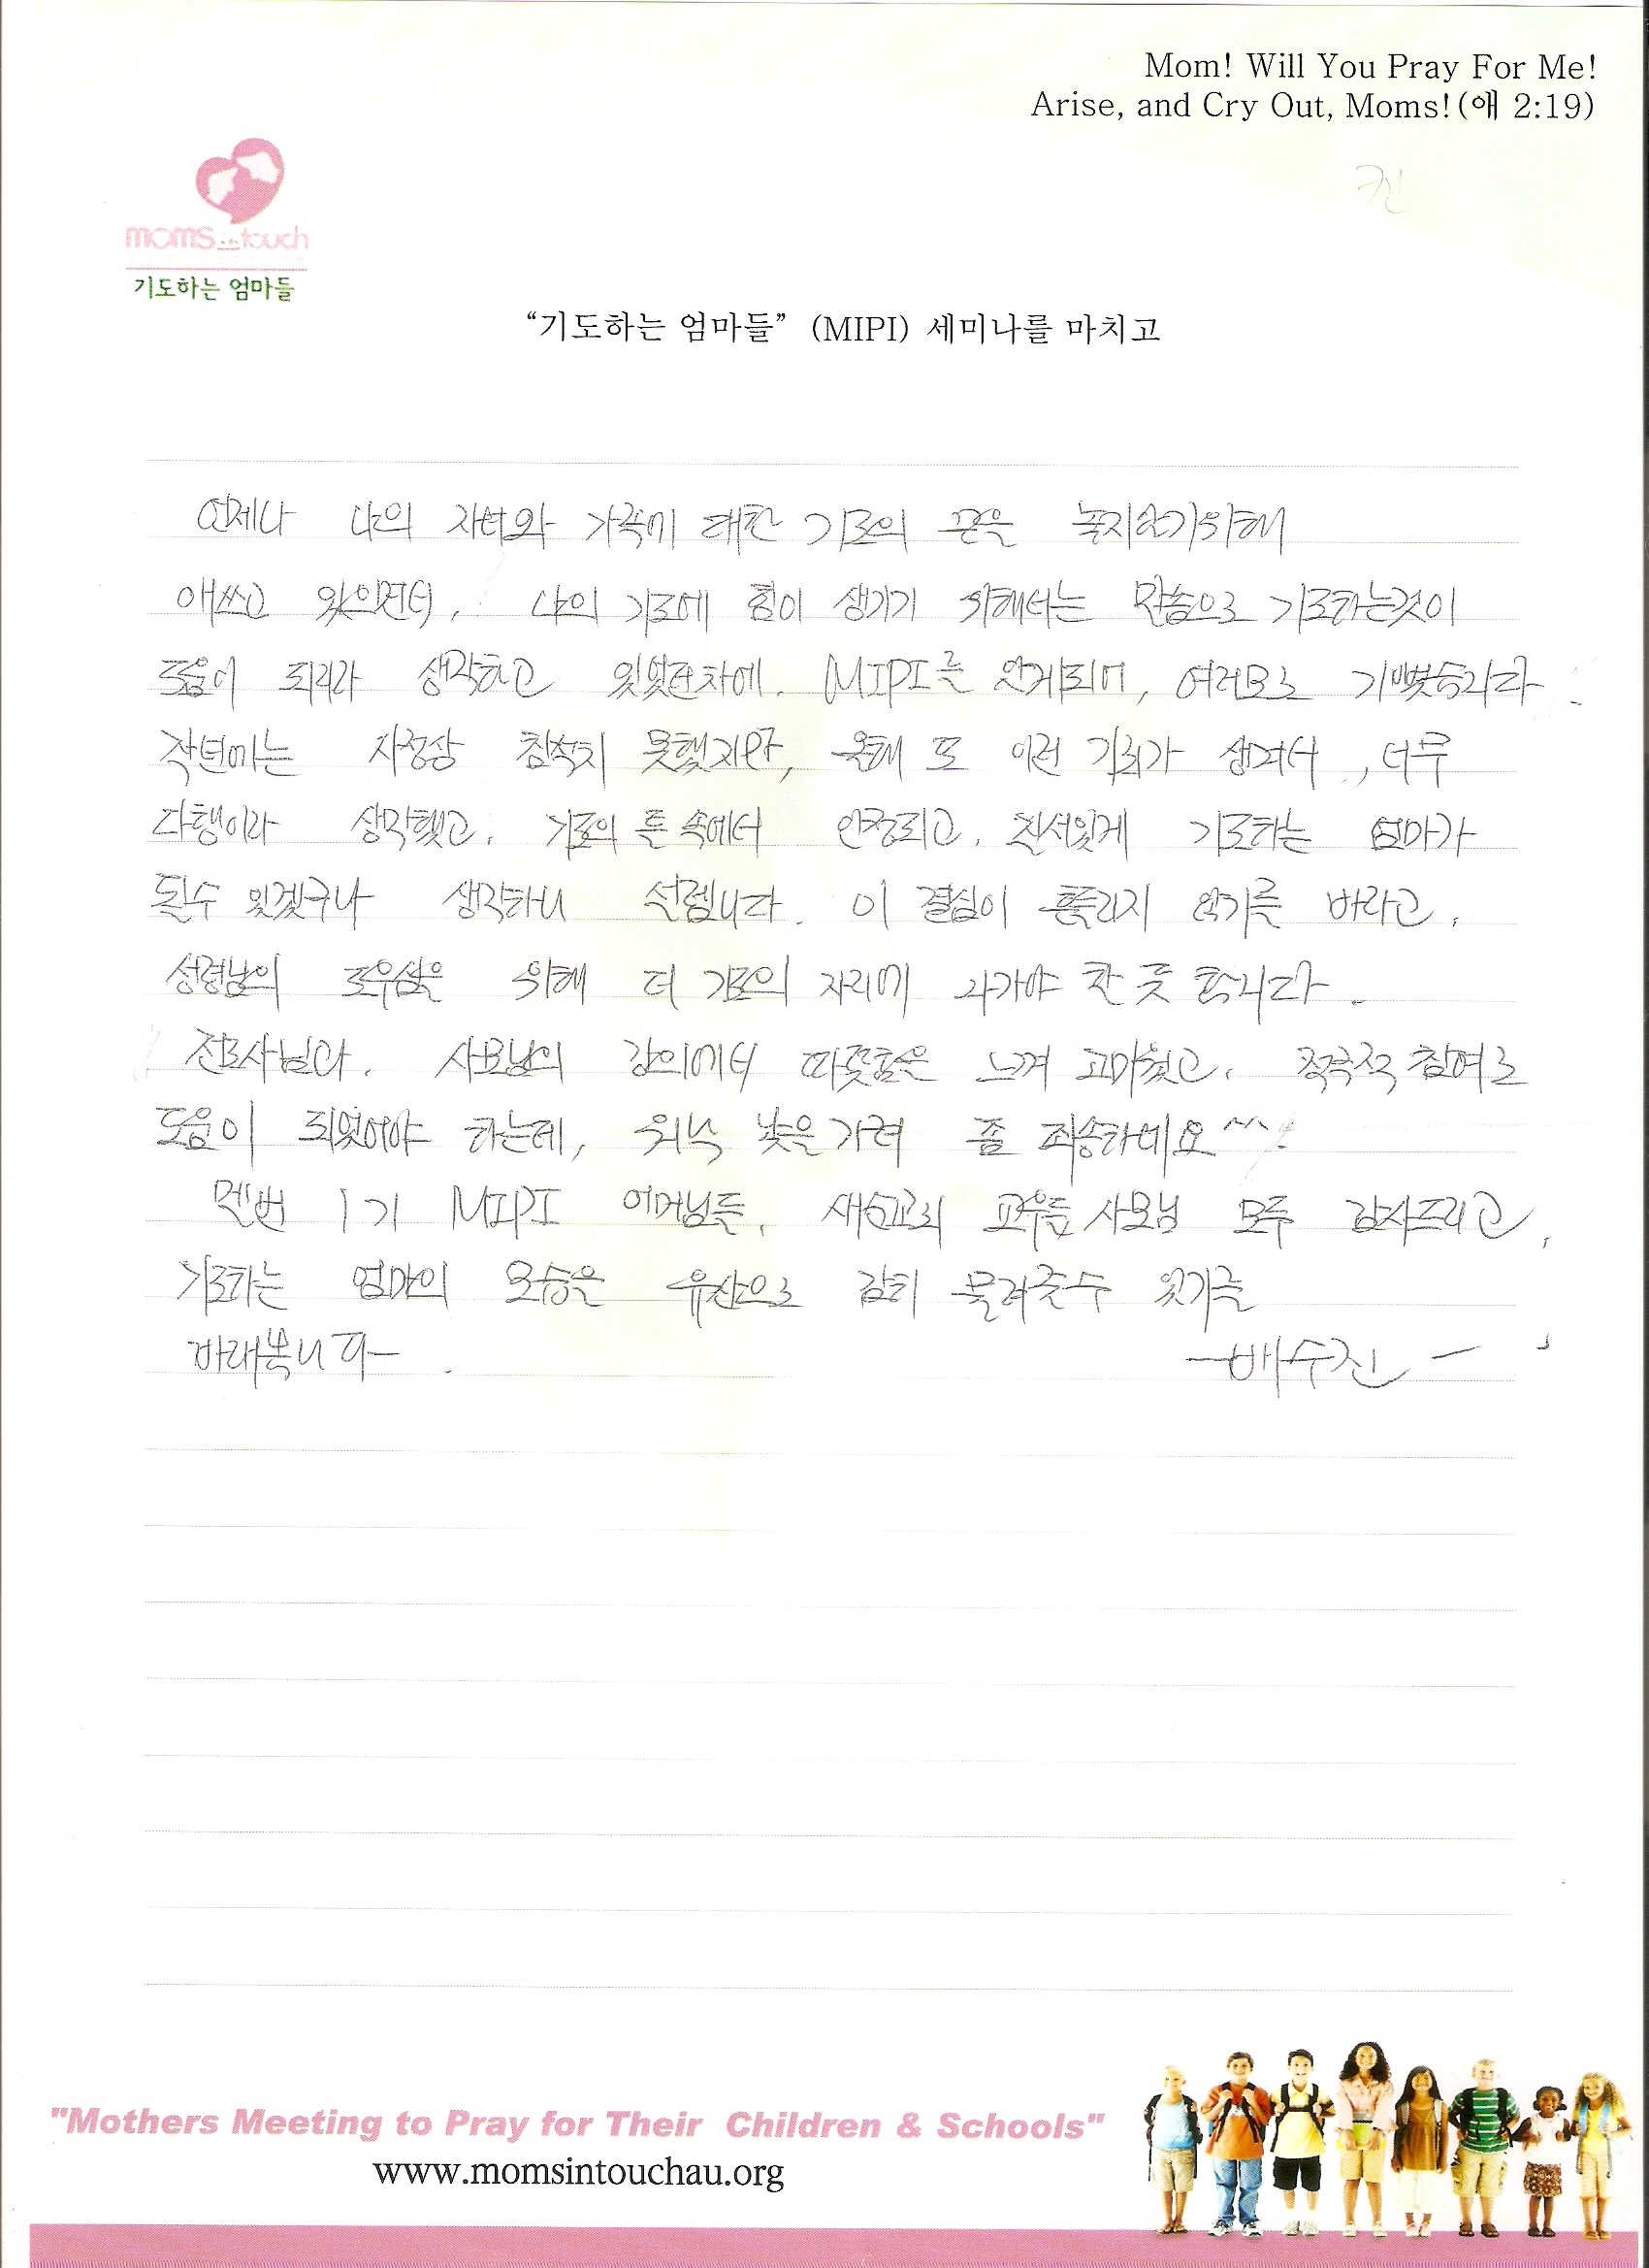 Mom! Will You Pray For Me!
Arise, and Cry Out, Moms!(애 2:19)
moms in touch
기도하는 엄마들
“기도하는 엄마들” (MIPI) 세미나를 마치고
언제나 나의 자녀와 가족에 대한 기도의 끈을 놓지않기위해
애쓰고 있으면서, 나의 기도에 힘이 생기기 위해서는 말씀으로 기도하는것이
도움이 되리라 생각하고 있었던차에. MIPI를 알게되어, 여러모로 기뻤습니다.
작년에는 사정상 참석치 못했지만, 올해 또 이런 기회가 생겨서, 너무
다행이라 생각했고. 기도의 틀 속에서 안정되고. 질서있게 기도하는 엄마가
될수 있겠구나 생각하니 설렙니다. 이 결심이 흔들리지 않기를 바라고.
성령님의 도우심을 위해 더 기도의 자리에 나가야 할 듯 합니다.
전도사님과. 사모님의 강의에서 따뜻함을 느껴 고마웠고. 적극적 참여로
도움이 되었어야 하는데, 워낙 낯을가려 좀 죄송하네요^^.
멜번 1기 MIPI 어머님들. 새순교회 교우들 사모님 모두 감사드리고,
기도하는 엄마의 모습을 유산으로 감히 물려줄수 있기를
바래봅니다.
-배수진-
"Mothers Meeting to Pray for Their Children & Schools"
www.momsintouchau.org